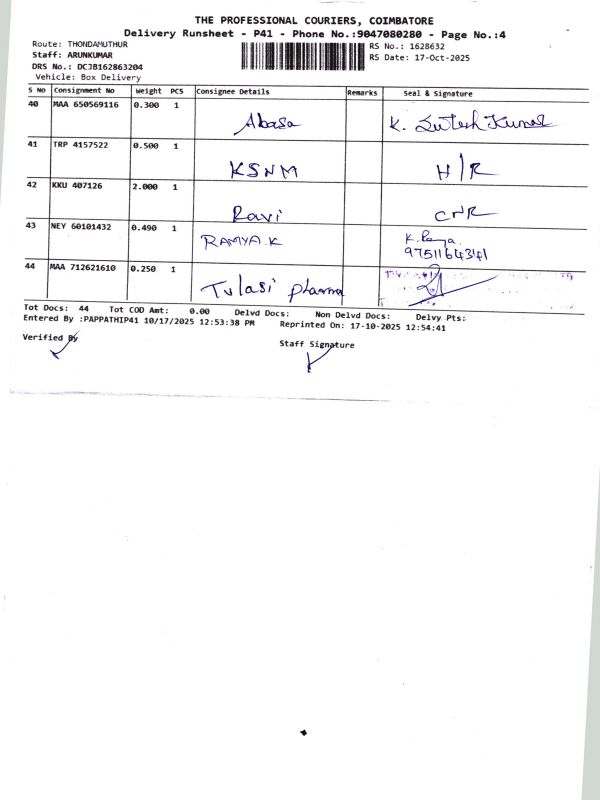 THE PROFESSIONAL COURIERS, COIMBATORE
Delivery Runsheet - P41 - Phone No.:9047080280 - Page No.:4
Route: THONDAMUTHUR RS No.: 1628632
Staff: ARUNKUMAR RS Date: 17-Oct-2025
DRS No.: DCJB162863204
Vehicle: Box Delivery
S No Consignment No Weight PCS Consignee Details Remarks Seal & Signature
40 MAA 650569116 0.300 1
Abasa K. Kumar
41 TRP 4157522 0.500 1
KSNM H/R
42 KKU 407126 2.000 1
Ravi CNR
43 NEY 60101432 0.490 1
RAMYA.K K.
9751164341
44 MAA 712621610 0.250 1
Tulasi pharma
Tot Docs: 44 Tot COD Amt: 0.00 Delvd Docs: Non Delvd Docs: Delvy Pts:
Entered By :PAPPATHIP41 10/17/2025 12:53:38 PM Reprinted On: 17-10-2025 12:54:41
Verified By
Staff Signature